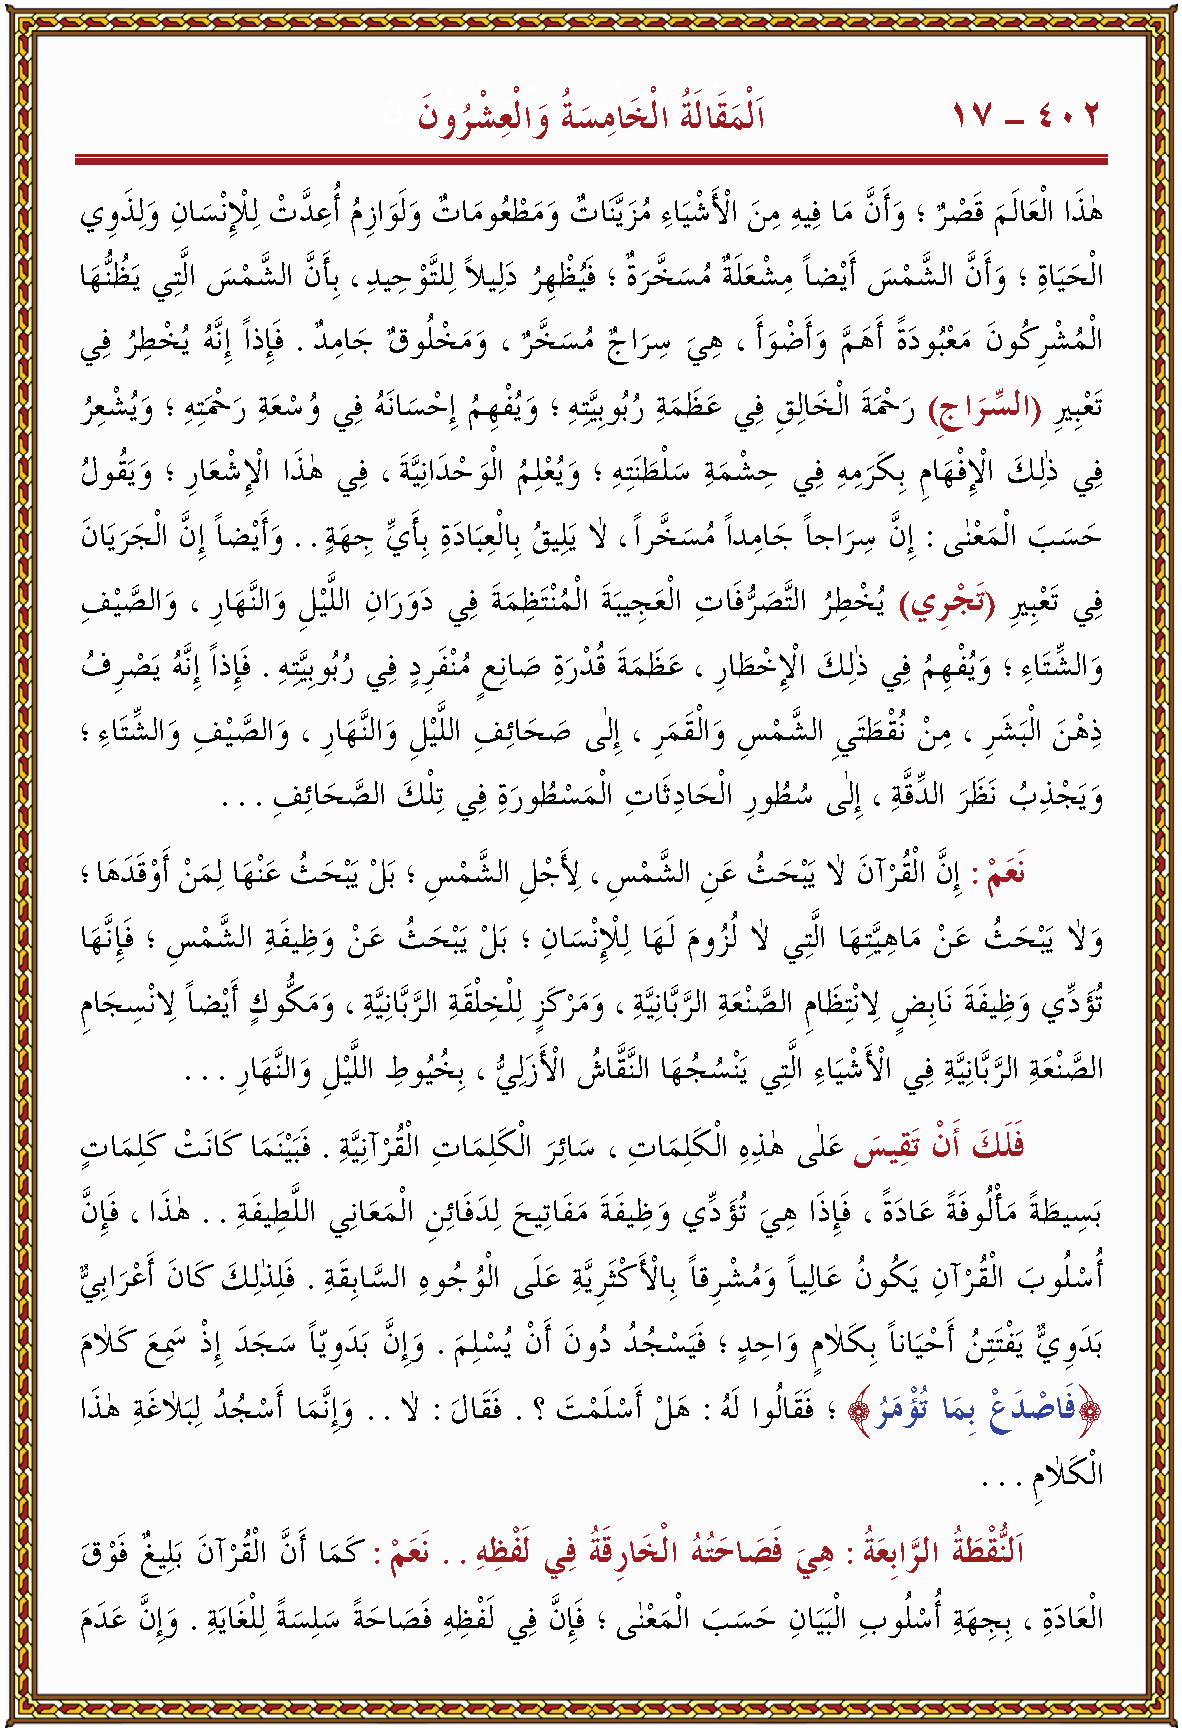 ٤٠٢ – ١٧ اَلْمَقَالَةُ الْخَامِسَةُ وَالْعِشْرُونَ
هٰذَا الْعَالَمَ قَصْرٌ ؛ وَأَنَّ مَا فِيهِ مِنَ الْأَشْيَاءِ مُزَيَّنَاتٌ وَمَطْعُومَاتٌ وَلَوَازِمُ أُعِدَّتْ لِلْإِنْسَانِ وَلِذَوِي
الْحَيَاةِ ؛ وَأَنَّ الشَّمْسَ أَيْضاً مِشْعَلَةٌ مُسَخَّرَةٌ ؛ فَيُظْهِرُ دَلِيلاً لِلتَّوْحِيدِ ، بِأَنَّ الشَّمْسَ الَّتِي يَظُنُّهَا
الْمُشْرِكُونَ مَعْبُودَةً أَهَمَّ وَأَضْوَأَ ، هِيَ سِرَاجٌ مُسَخَّرٌ ، وَمَخْلُوقٌ جَامِدٌ . فَإِذاً إِنَّهُ يُخْطِرُ فِي
تَعْبِيرِ (السِّرَاجِ) رَحْمَةَ الْخَالِقِ فِي عَظَمَةِ رُبُوبِيَّتِهِ ؛ وَيُفْهِمُ إِحْسَانَهُ فِي وُسْعَةِ رَحْمَتِهِ ؛ وَيُشْعِرُ
فِي ذٰلِكَ الْإِفْهَامِ بِكَرَمِهِ فِي حِشْمَةِ سَلْطَنَتِهِ ؛ وَيُعْلِمُ الْوَحْدَانِيَّةَ ، فِي هٰذَا الْإِشْعَارِ ؛ وَيَقُولُ
حَسَبَ الْمَعْنٰى : إِنَّ سِرَاجاً جَامِداً مُسَخَّراً ، لَا يَلِيقُ بِالْعِبَادَةِ بِأَيِّ جِهَةٍ . . وَأَيْضاً إِنَّ الْجَرَيَانَ
فِي تَعْبِيرِ (تَجْرِي) يُخْطِرُ التَّصَرُّفَاتِ الْعَجِيبَةَ الْمُنْتَظِمَةَ فِي دَوَرَانِ اللَّيْلِ وَالنَّهَارِ ، وَالصَّيْفِ
وَالشِّتَاءِ ؛ وَيُفْهِمُ فِي ذٰلِكَ الْإِخْطَارِ ، عَظَمَةَ قُدْرَةِ صَانِعٍ مُنْفَرِدٍ فِي رُبُوبِيَّتِهِ . فَإِذاً إِنَّهُ يَصْرِفُ
ذِهْنَ الْبَشَرِ ، مِنْ نُقْطَتَيِ الشَّمْسِ وَالْقَمَرِ ، إِلٰى صَحَائِفِ اللَّيْلِ وَالنَّهَارِ ، وَالصَّيْفِ وَالشِّتَاءِ ؛
وَيَجْذِبُ نَظَرَ الدِّقَّةِ ، إِلٰى سُطُورِ الْحَادِثَاتِ الْمَسْطُورَةِ فِي تِلْكَ الصَّحَائِفِ . . .
نَعَمْ : إِنَّ الْقُرْآنَ لَا يَبْحَثُ عَنِ الشَّمْسِ ، لِأَجْلِ الشَّمْسِ ؛ بَلْ يَبْحَثُ عَنْهَا لِمَنْ أَوْقَدَهَا ؛
وَلَا يَبْحَثُ عَنْ مَاهِيَّتِهَا الَّتِي لَا لُزُومَ لَهَا لِلْإِنْسَانِ ؛ بَلْ يَبْحَثُ عَنْ وَظِيفَةِ الشَّمْسِ ؛ فَإِنَّهَا
تُؤَدِّي وَظِيفَةَ نَابِضٍ لِانْتِظَامِ الصَّنْعَةِ الرَّبَّانِيَّةِ ، وَمَرْكَزٍ لِلْخِلْقَةِ الرَّبَّانِيَّةِ ، وَمَكُّوكٍ أَيْضاً لِانْسِجَامِ
الصَّنْعَةِ الرَّبَّانِيَّةِ فِي الْأَشْيَاءِ الَّتِي يَنْسُجُهَا النَّقَّاشُ الْأَزَلِيُّ ، بِخُيُوطِ اللَّيْلِ وَالنَّهَارِ . . .
فَلَكَ أَنْ تَقِيسَ عَلٰى هٰذِهِ الْكَلِمَاتِ ، سَائِرَ الْكَلِمَاتِ الْقُرْآنِيَّةِ . فَبَيْنَمَا كَانَتْ كَلِمَاتٍ
بَسِيطَةً مَأْلُوفَةً عَادَةً ، فَإِذَا هِيَ تُؤَدِّي وَظِيفَةَ مَفَاتِيحَ لِدَفَائِنِ الْمَعَانِي اللَّطِيفَةِ . . هٰذَا ، فَإِنَّ
أُسْلُوبَ الْقُرْآنِ يَكُونُ عَالِياً وَمُشْرِقاً بِالْأَكْثَرِيَّةِ عَلَى الْوُجُوهِ السَّابِقَةِ . فَلِذٰلِكَ كَانَ أَعْرَابِيٌّ
بَدَوِيٌّ يَفْتَتِنُ أَحْيَاناً بِكَلَامٍ وَاحِدٍ ؛ فَيَسْجُدُ دُونَ أَنْ يُسْلِمَ . وَإِنَّ بَدَوِيّاً سَجَدَ إِذْ سَمِعَ كَلَامَ
﴿فَاصْدَعْ بِمَا تُؤْمَرُ﴾ ؛ فَقَالُوا لَهُ : هَلْ أَسْلَمْتَ ؟ . فَقَالَ : لَا . . وَإِنَّمَا أَسْجُدُ لِبَلَاغَةِ هٰذَا
الْكَلَامِ . . .
اَلنُّقْطَةُ الرَّابِعَةُ : هِيَ فَصَاحَتُهُ الْخَارِقَةُ فِي لَفْظِهِ . . نَعَمْ : كَمَا أَنَّ الْقُرْآنَ بَلِيغٌ فَوْقَ
الْعَادَةِ ، بِجِهَةِ أُسْلُوبِ الْبَيَانِ حَسَبَ الْمَعْنٰى ؛ فَإِنَّ فِي لَفْظِهِ فَصَاحَةً سَلِسَةً لِلْغَايَةِ . وَإِنَّ عَدَمَ